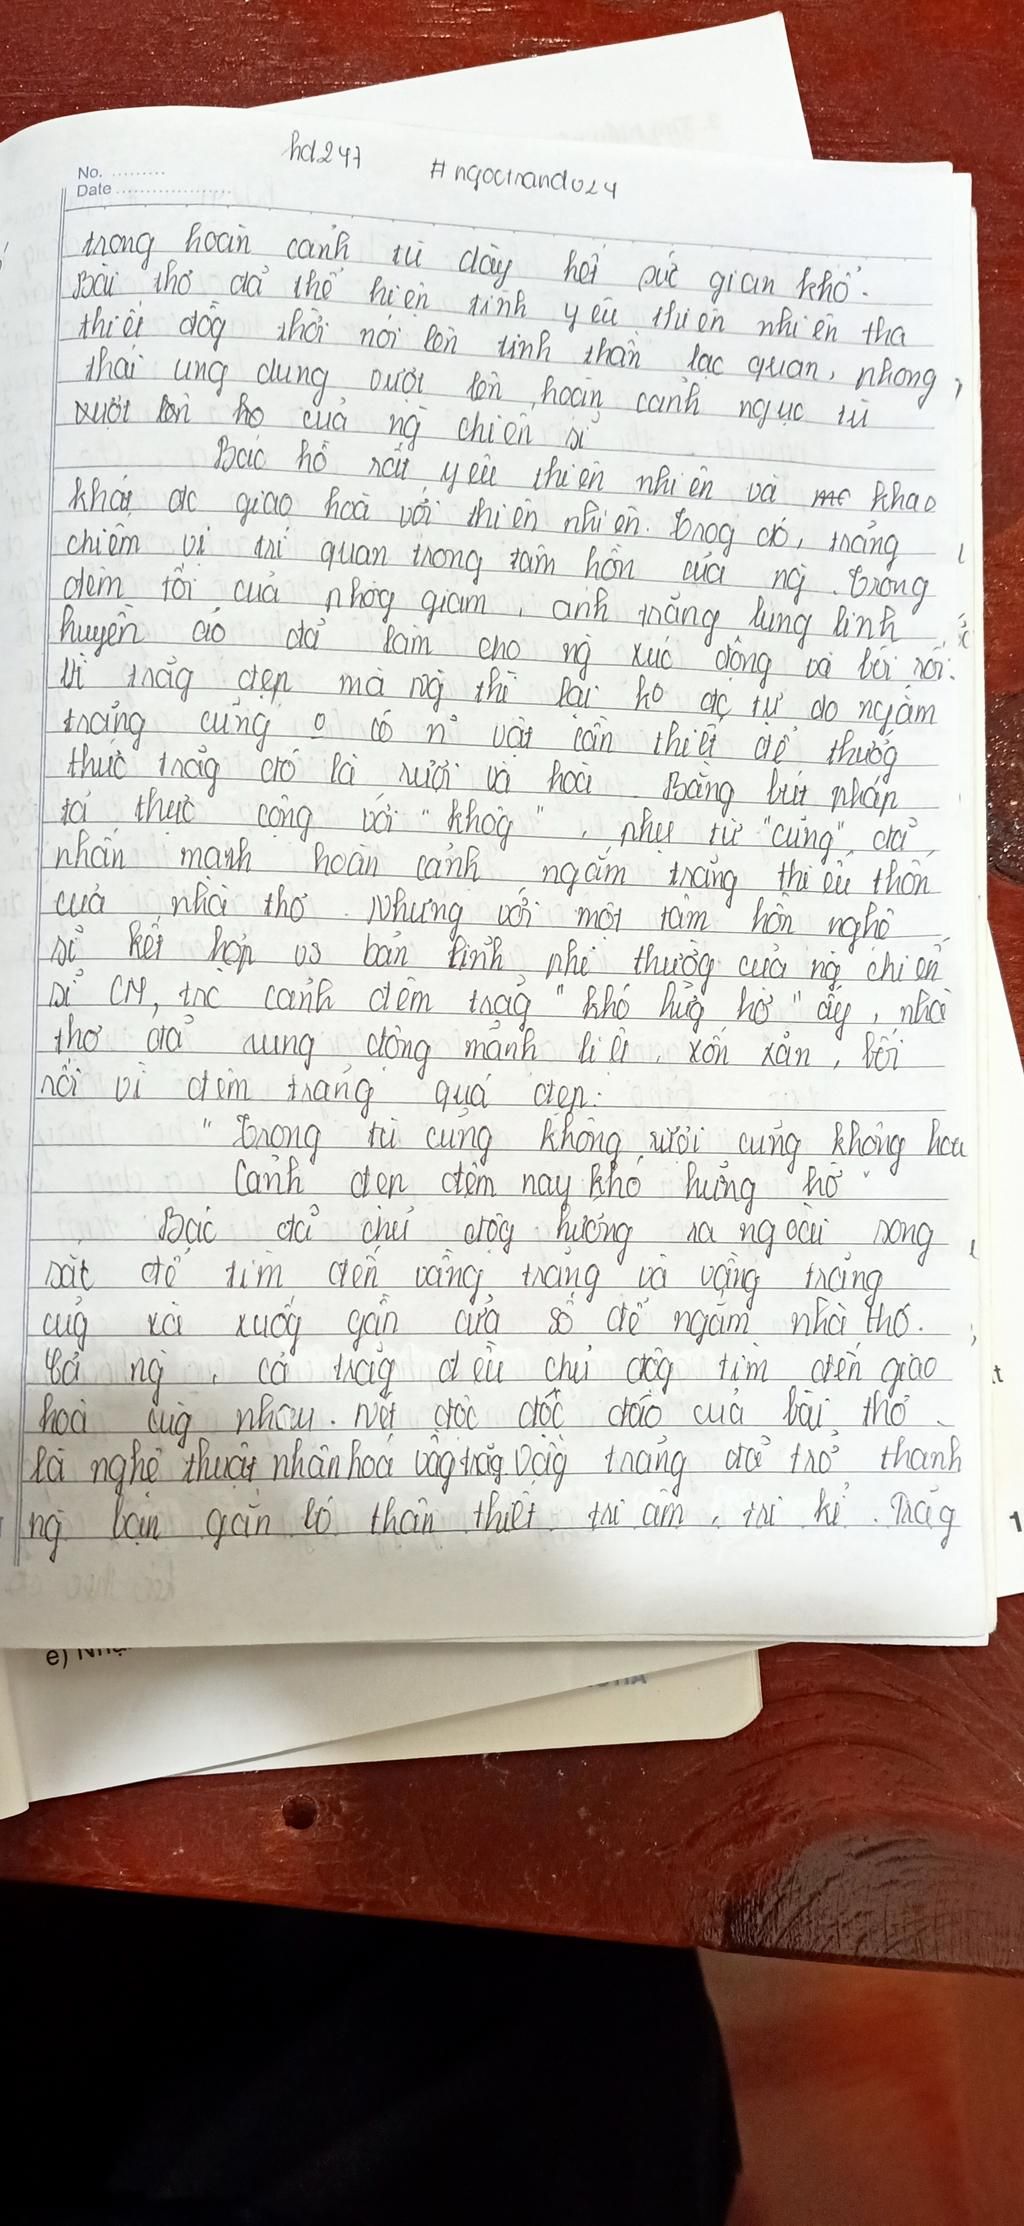 hd247 #ngoctrand024
No. ..........
Date ....................
trong hoàn cảnh tù đày hết sức gian khổ.
Bài thơ đã thể hiện tình yêu thiên nhiên tha
thiết đồg thời nói lên tinh thần lạc quan, phong
thái ung dung vượt lên hoàn cảnh ngục tù
vượt lên ho của ng chiến sĩ
Bác hồ rất yêu thiên nhiên và khao
khát đc giao hoà với thiên nhiên. Trog đó, trăng
chiếm vị trí quan trong tâm hồn của ng. Trong
đêm tối của phòg giam, ánh trăng lung linh
huyền ảo đã làm cho ng xúc động và bối rối.
Vì trăg đẹp mà ng thì lại ho đc tự do ngắm
trăng cũng o có n~ vật cần thiết để thưởg
thức trăg đó là rượi và hoa. Bằng bút pháp
tả thực cộng với "khôg", phụ từ "cũng", đã
nhấn mạnh hoàn cảnh ngắm trăng thiếu thốn
của nhà thơ. Nhưng với một tâm hồn nghệ
sĩ kết hợp vs bản lĩnh phi thườg của ng chiến
sĩ CM, trc cảnh đêm trăg "khó hữg hờ" ấy, nhà
thơ đã rung động mãnh liệt, xốn xản, bối
rối vì đêm trăng quá đẹp:
"Trong tù cũng không rượi cũng không hoa
Cảnh đẹp đêm nay khó hững hờ"
Bác đã chủ độg hướng ra ngoài song
sắt để tìm đến vầng trăng và vầng trăng
cũg xà xuốg gần cửa sổ để ngắm nhà thơ.
Cả ng, cả trăg đều chủ độg tìm đến giao
hoà cùg nhau. Nét độc đốc đáo của bài thơ
là nghệ thuật nhân hoá vầg trăg. Vầg trăng đã trở thành
ng bạn gắn bó thân thiết, tri âm, tri kỉ. Trăg
e)
1